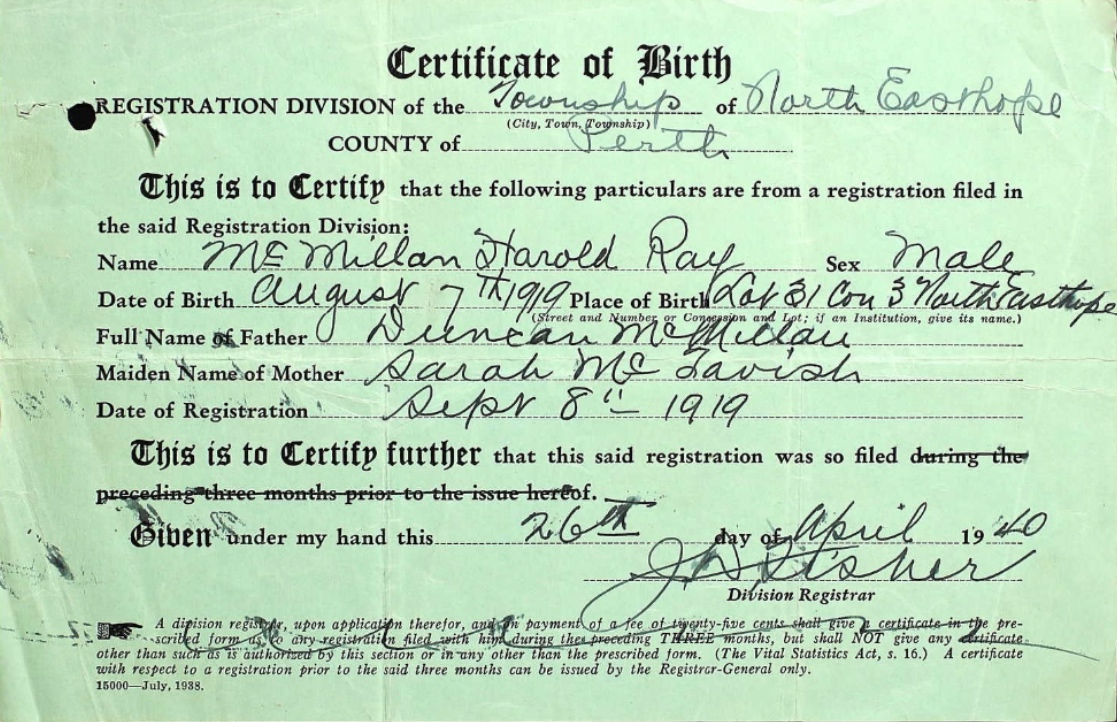 Certificate of Birth
REGISTRATION DIVISION of the Township of North Easthope
(City, Town, Township)
COUNTY of Perth
This is to Certify that the following particulars are from a registration filed in
the said Registration Division:
Name McMillan Harold Ray Sex Male
Date of Birth August 7th 1919 Place of Birth Lot 31 Con 3 North Easthope
(Street and Number or Concession and Lot; if an Institution, give its name.)
Full Name of Father Duncan McMillan
Maiden Name of Mother Sarah McTavish
Date of Registration Sept 8th 1919
This is to Certify further that this said registration was so filed during the
preceding three months prior to the issue hereof.
Given under my hand this 26th day of April 1940
Fisher
Division Registrar
A division registrar, upon application therefor, and on payment of a fee of twenty-five cents shall give a certificate in the pre-
scribed form as to any registration filed with him during the preceding THREE months, but shall NOT give any certificate
other than such as is authorized by this section or in any other than the prescribed form. (The Vital Statistics Act, s. 16.) A certificate
with respect to a registration prior to the said three months can be issued by the Registrar-General only.
15000—July, 1938.